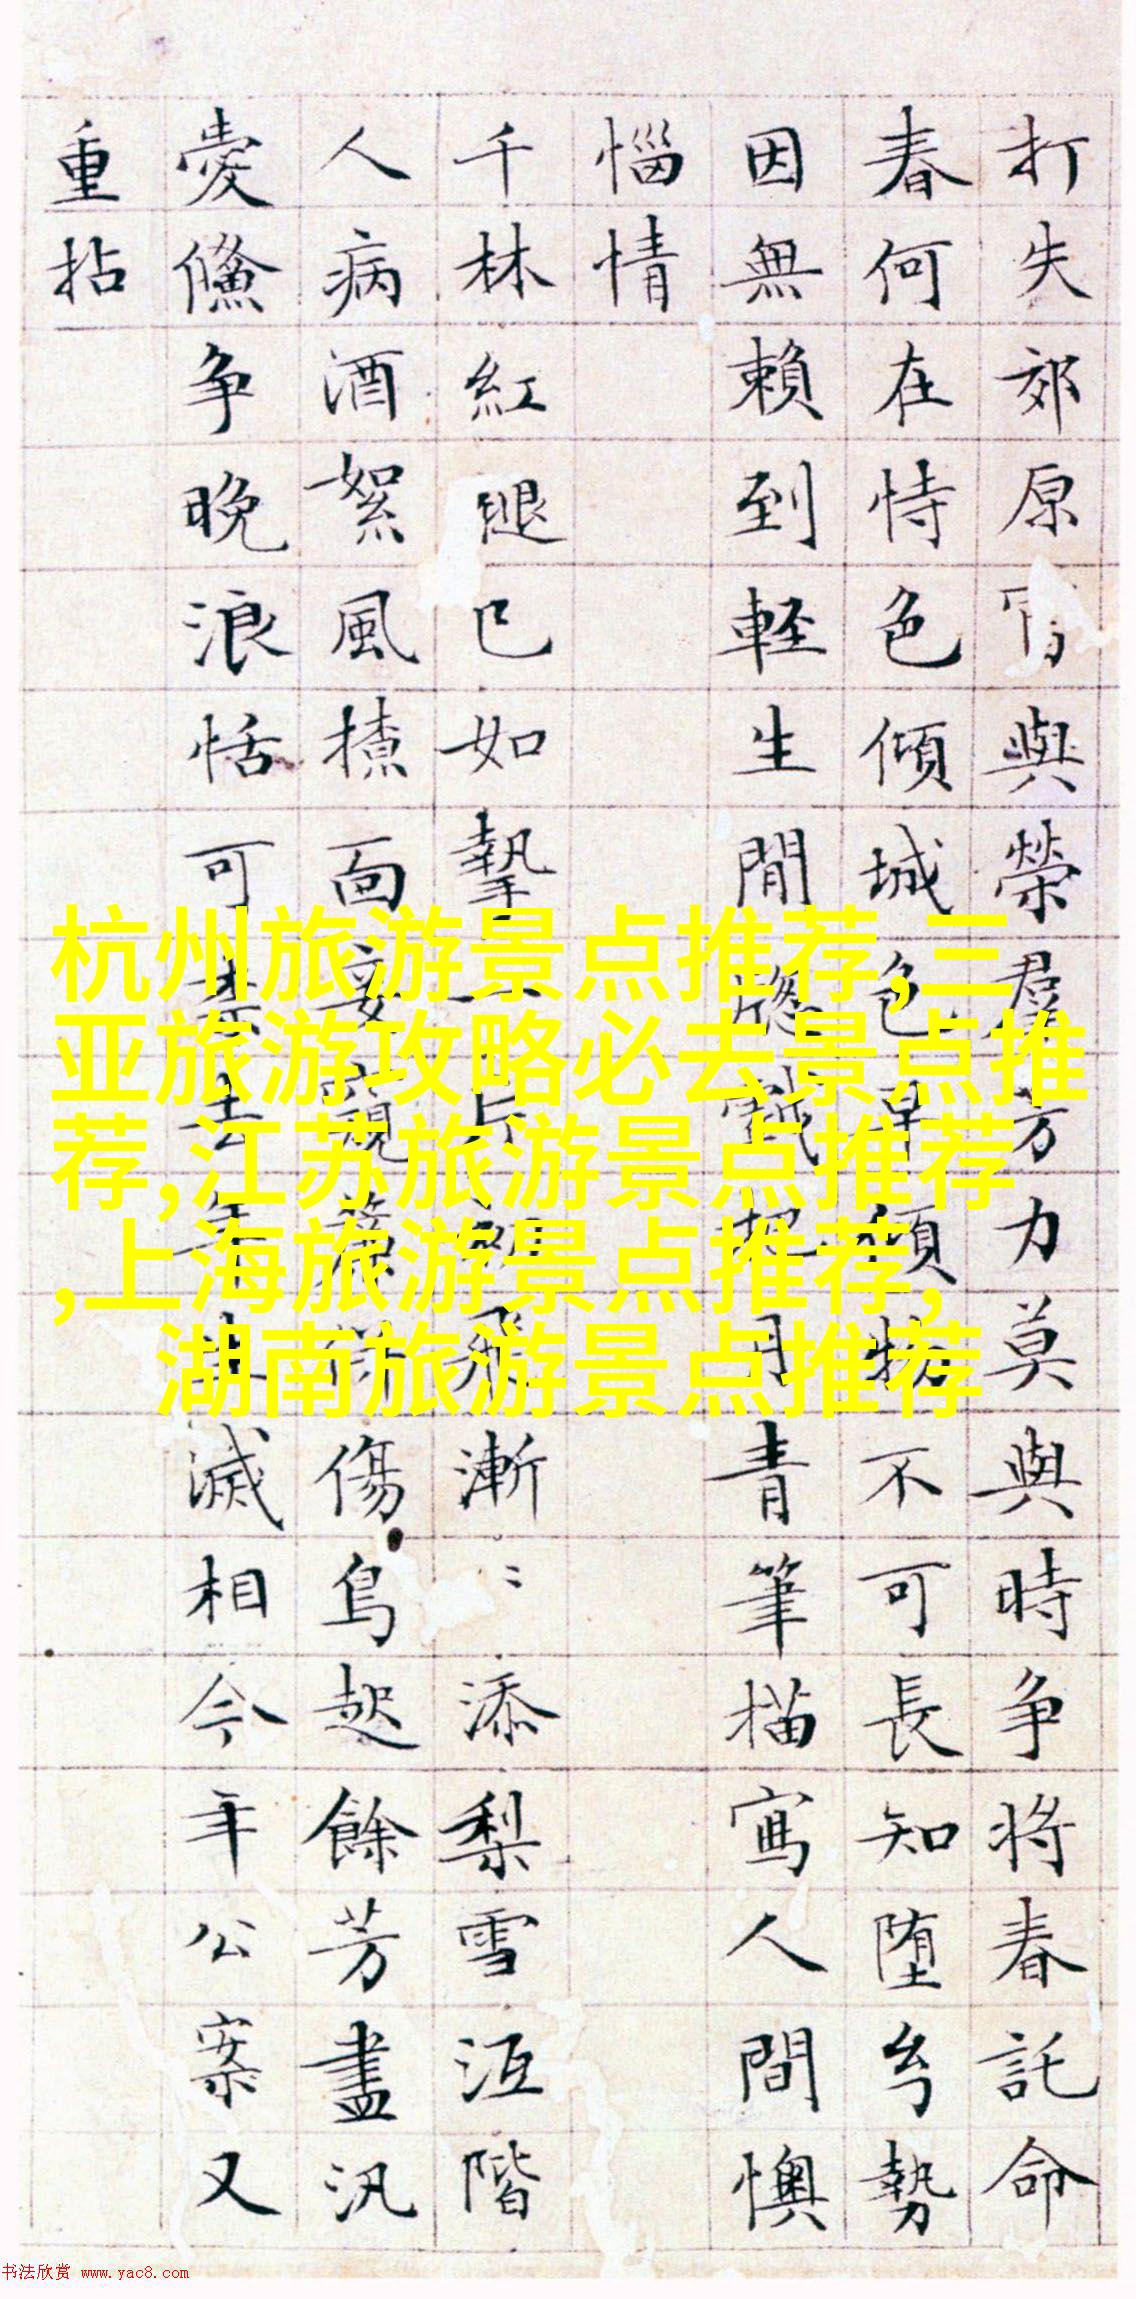 打失郊原與榮羣芳力莫與時争將春託命
春何在恃色傾城色早傾物不可長知堕勢
因無賴到輕生閒愁戲把月青筆描寫人間懊
惱情
千林紅腿已如擊一片初飛漸〻添梨雪沍階
人病酒絮風揸面妥簾傷鳥起餘芳盡汎
愛争晚浪恬可年生滅相今年公案又
重拈
杭州旅游景点推荐,三
亚旅游攻略必去景点推
荐,江苏旅游景点推荐
,上海旅游景点推荐,
湖南旅游景点推荐
书法欣赏 www.yac8.com